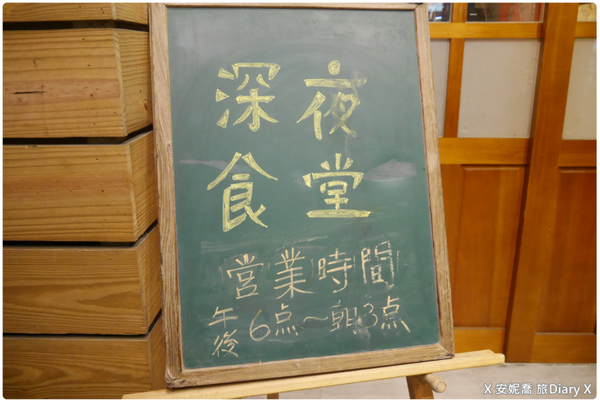 深夜
食堂
営業時間
午後6点～朝3点
X 安妮喬 旅Diary X